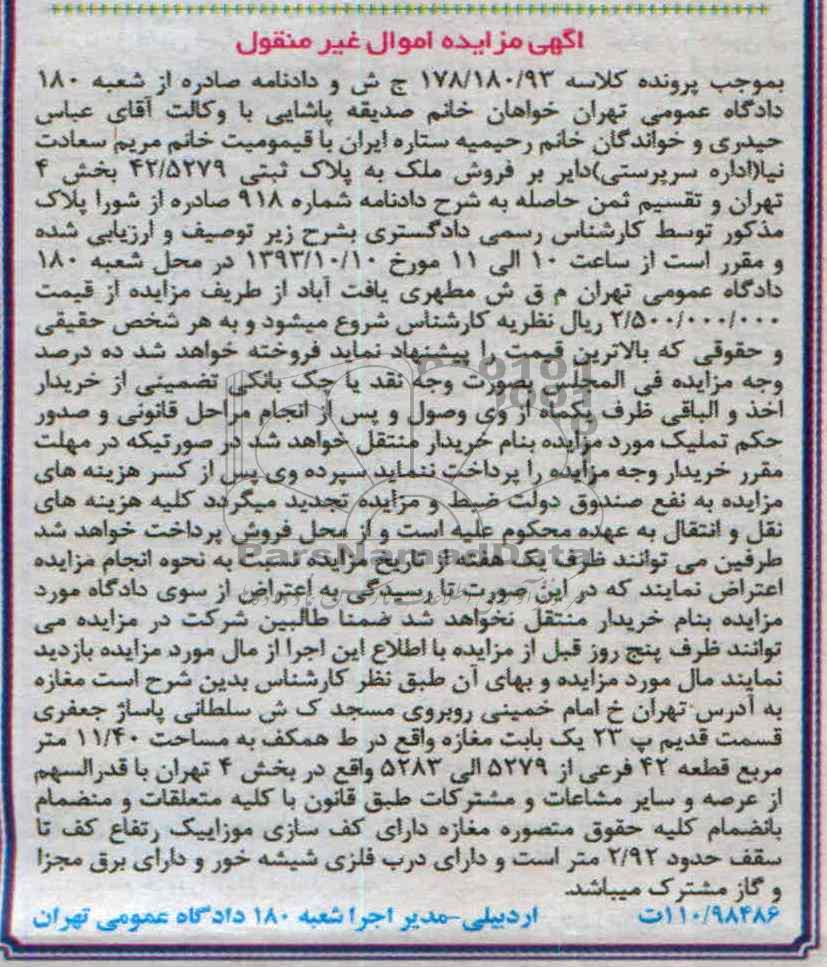 آگهی مزایده اموال غیر منقول
بموجب پرونده کلاسه ۱۷۸/۱۸۰/۹۳ ج ش و دادنامه صادره از شعبه ۱۸۰
دادگاه عمومی تهران خواهان خانم صدیقه پاشایی با وکالت آقای عباس
حیدری و خواندگان خانم رحیمیه ستاره ایران با قیمومیت خانم مریم سعادت
نیا(اداره سرپرستی)دایر بر فروش ملک به پلاک ثبتی ۴۲/۵۲۷۹ بخش ۴
تهران و تقسیم ثمن حاصله به شرح دادنامه شماره ۹۱۸ صادره از شورا پلاک
مذکور توسط کارشناس رسمی دادگستری بشرح زیر توصیف و ارزیابی شده
و مقرر است از ساعت ۱۰ الی ۱۱ مورخ ۱۳۹۳/۱۰/۱۰ در محل شعبه ۱۸۰
دادگاه عمومی تهران م ق ش مطهری یافت آباد از طریف مزایده از قیمت
۲/۵۰۰/۰۰۰/۰۰۰ ریال نظریه کارشناس شروع میشود و به هر شخص حقیقی
و حقوقی که بالاترین قیمت را پیشنهاد نماید فروخته خواهد شد ده درصد
وجه مزایده فی المجلس بصورت وجه نقد یا چک بانکی تضمینی از خریدار
اخذ و الباقی ظرف یکماه از وی وصول و پس از انجام مراحل قانونی و صدور
حکم تملیک مورد مزایده بنام خریدار منتقل خواهد شد در صورتیکه در مهلت
مقرر خریدار وجه مزایده را پرداخت ننماید سپرده وی پس از کسر هزینه های
مزایده به نفع صندوق دولت ضبط و مزایده تجدید میگردد کلیه هزینه های
نقل و انتقال به عهده محکوم علیه است و از محل فروش پرداخت خواهد شد
ParsNamadData
طرفین می توانند ظرف یک هفته از تاریخ مزایده نسبت به نحوه انجام مزایده
اعتراض نمایند که در این صورت تا رسیدگی به اعتراض از سوی دادگاه مورد
مزایده بنام خریدار منتقل نخواهد شد ضمنا طالبین شرکت در مزایده می
توانند ظرف پنج روز قبل از مزایده با اطلاع این اجرا از مال مورد مزایده بازدید
نمایند مال مورد مزایده و بهای آن طبق نظر کارشناس بدین شرح است مغازه
به آدرس تهران خ امام خمینی روبروی مسجد ک ش سلطانی پاساژ جعفری
قسمت قدیم پ ۲۳ یک بابت مغازه واقع در ط همکف به مساحت ۱۱/۴۰ متر
مربع قطعه ۴۲ فرعی از ۵۲۷۹ الی ۵۲۸۳ واقع در بخش ۴ تهران با قدرالسهم
از عرصه و سایر مشاعات و مشترکات طبق قانون با کلیه متعلقات و منضمام
بانضمام کلیه حقوق متصوره مغازه دارای کف سازی موزاییک رتفاع کف تا
سقف حدود ۲/۹۲ متر است و دارای درب فلزی شیشه خور و دارای برق مجزا
و گاز مشترک میباشد.
۱۱۰/۹۸۴۸۶ت اردبیلی-مدیر اجرا شعبه ۱۸۰ دادگاه عمومی تهران